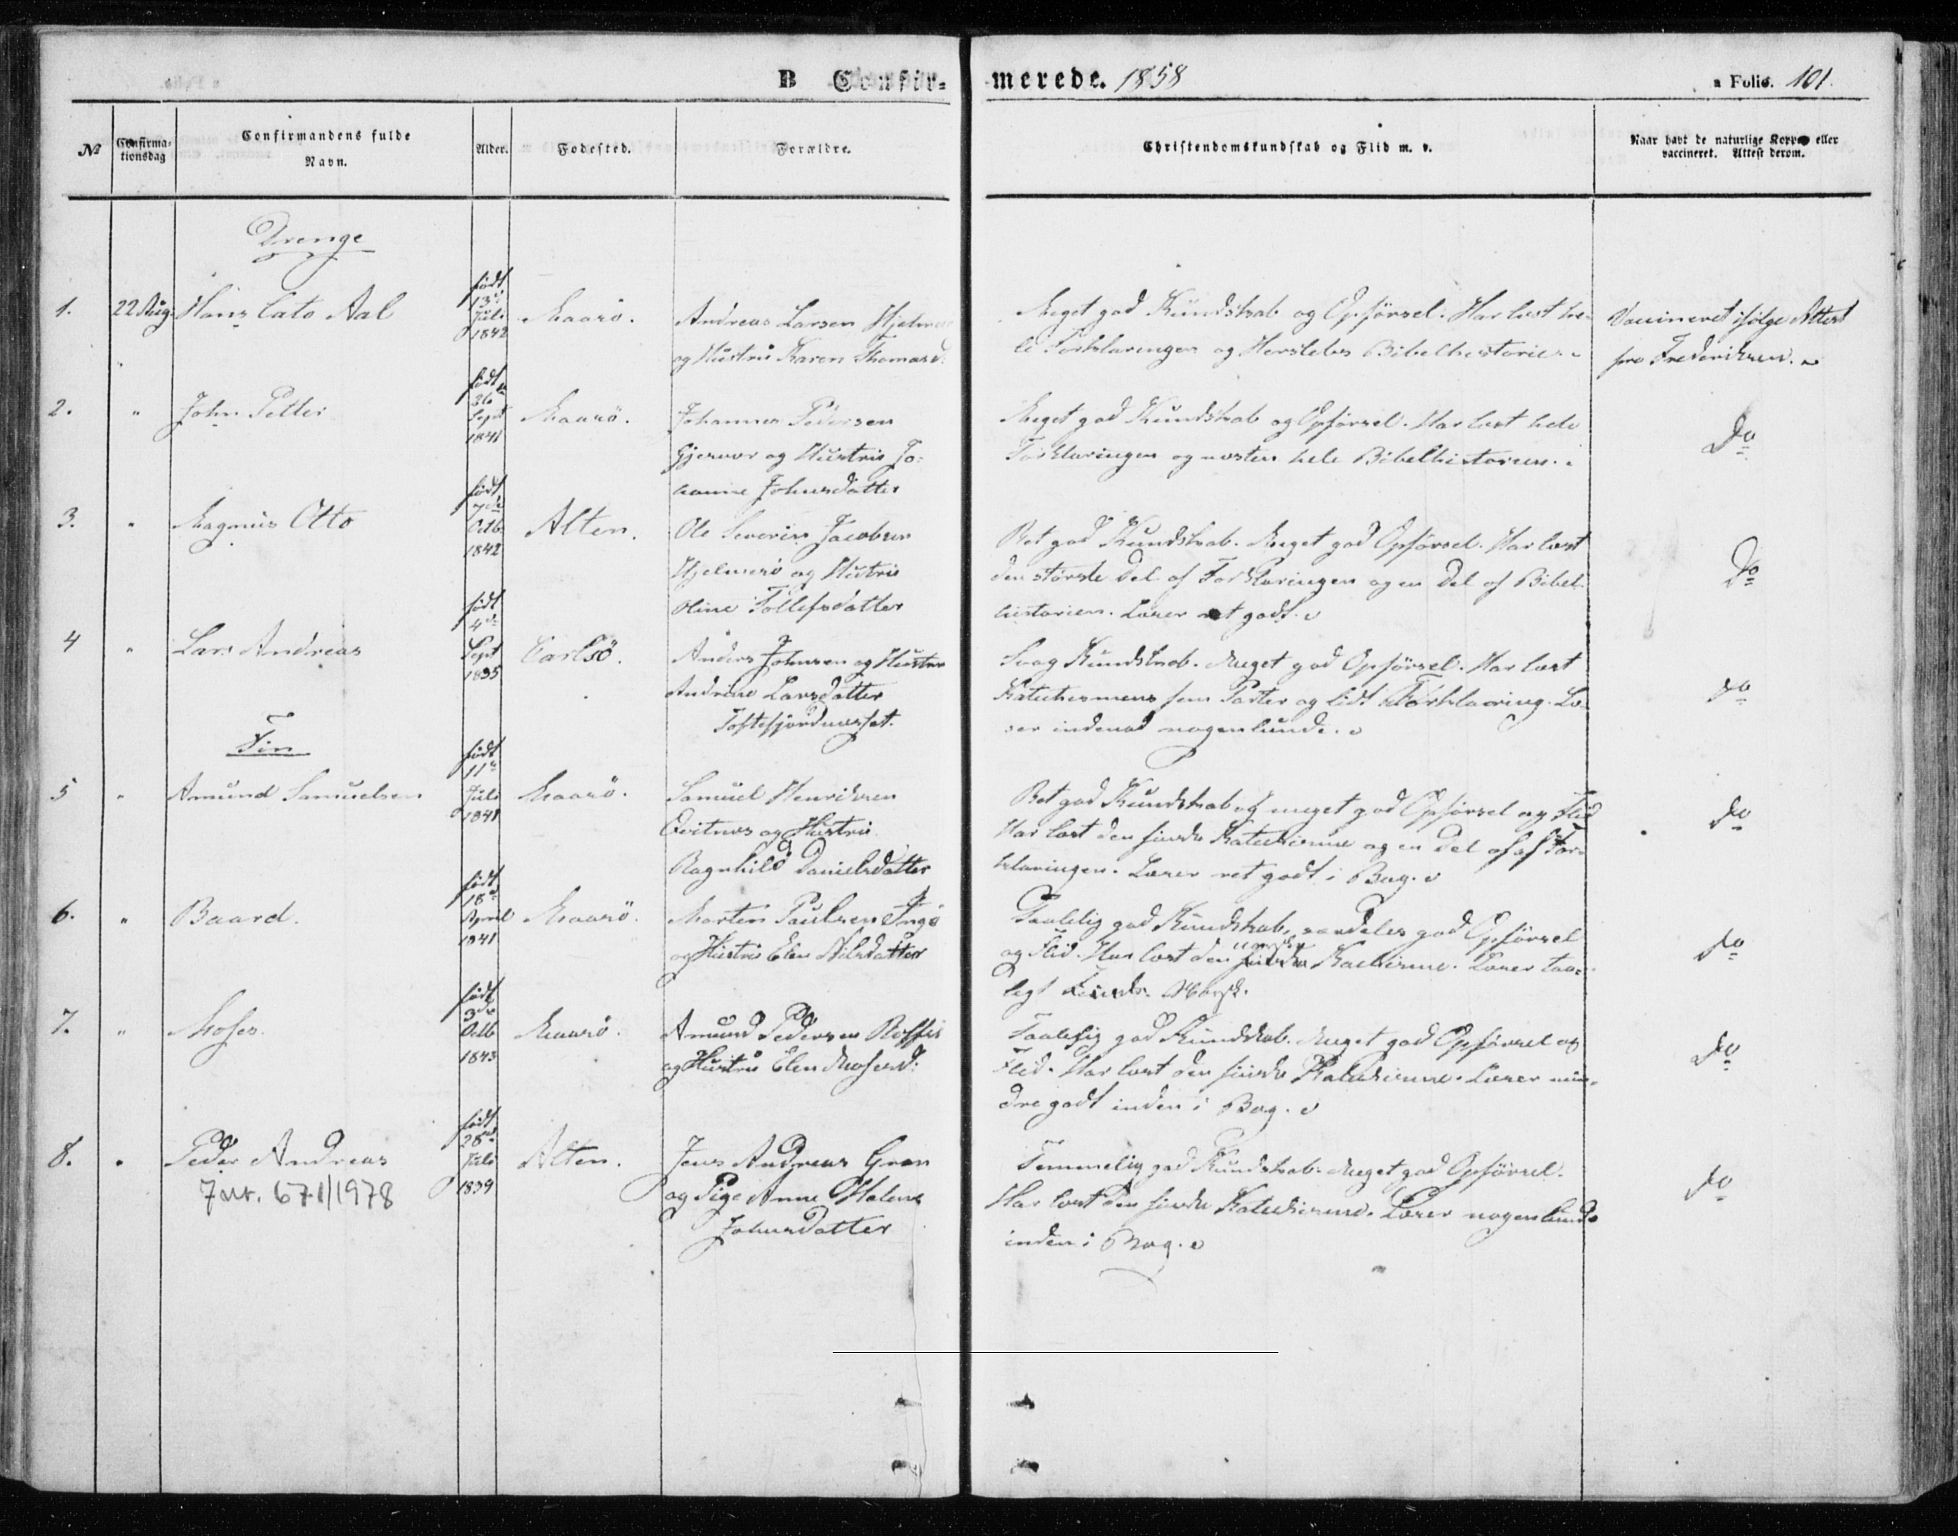 B Confir- merede. 1858
a Folio. 101.
No
Confirma-
tionsdag
Confirmandens fulde
Navn.
Alder.
Fødested.
Forældre.
Christendomskundskab og Flid m. v.
Naar havt de naturlige Kopper eller
vaccineret. Attest derom.
Drenge
1. 22 Aug. Hans Cato Aal
født
13de
Juli
1842
Maasø.
Andreas Larsen
og Hustru Karen Thomasd.
Meget god Kundskab og Opførsel. Har læst he-
le Forklaringen og Herslebs Bibelhistorie.
Vaccineret ifølge Attest
fra Frederiksen.
2. " John Petter
født
Sept
1841
Maasø.
Johannes Pedersen
Gjesvær og Hustru Jo-
hanne Johnsdatter
Meget god Kundskab og Opførsel. Har læst hele
Forklaringen og næsten hele Bibelhistorien.
Do
3. " Magnus Otto
født
7de
Octb
1842
Alten.
Ole Severin Jacobsen
Hjelmsø og Hustru
Oline Tollefsdatter
Ret god Kundskab. Meget god Opførsel. Har læst
den største Del af Forklaringen og en Del af Bibel-
historien. Læser ret godt.
Do
4 " Lars Andreas
født
4de
Sept
1835
Carlsö.
Anders Johnsen og Hustru
Andrine Larsdatter
Toftefjordnæsset.
Svag Kundskab. Meget god Opførsel. Har læst
Katechismens fem Parter og lidt Forklaring. Læ-
ser indenad nogenlunde.
Do
Fin
5 " Amund Samuelsen
født
11te
Juli
1841
Maasø.
Samuel Henriksen
Qvitnæs og Hustru
Ragnhild Danielsdatter
Ret god Kundskab og meget god Opførsel og Flid
Har læst den finske Katechisme og en Del af af For-
klaringen. Læser ret godt i Bog.
Do
6. " Baard.
født
18de
April
1841
Maasø.
Morten Paulsen Ingø
og Hustru Elen Nilsdatter
Taalelig god Kundskab, særdeles god Opførsel
og Flid. Har læst den norske finske Katechisme. Læser taa-
legt Finsk. Norsk.
Do
7. " Moses.
født
3de
Octb
1843
Maasø.
Amund Pedersen
og Hustru Elen Mosesd.
Taalelig god Kundskab. Meget god Opførsel og
Flid. Har læst den finske Katechisme. Læser min-
dre godt inden i Bog.
Do
8. " Peder Andreas
Jnr. 671/1978
født
28de
Juli
1839
Alten.
Jens Andreas Gran
og Pige Anne Malena
Johnsdatter
Temmelig god Kundskab. Meget god Opførsel.
Har læst den finske Katechisme. Læser nogenlunde
inden i Bog.
Do